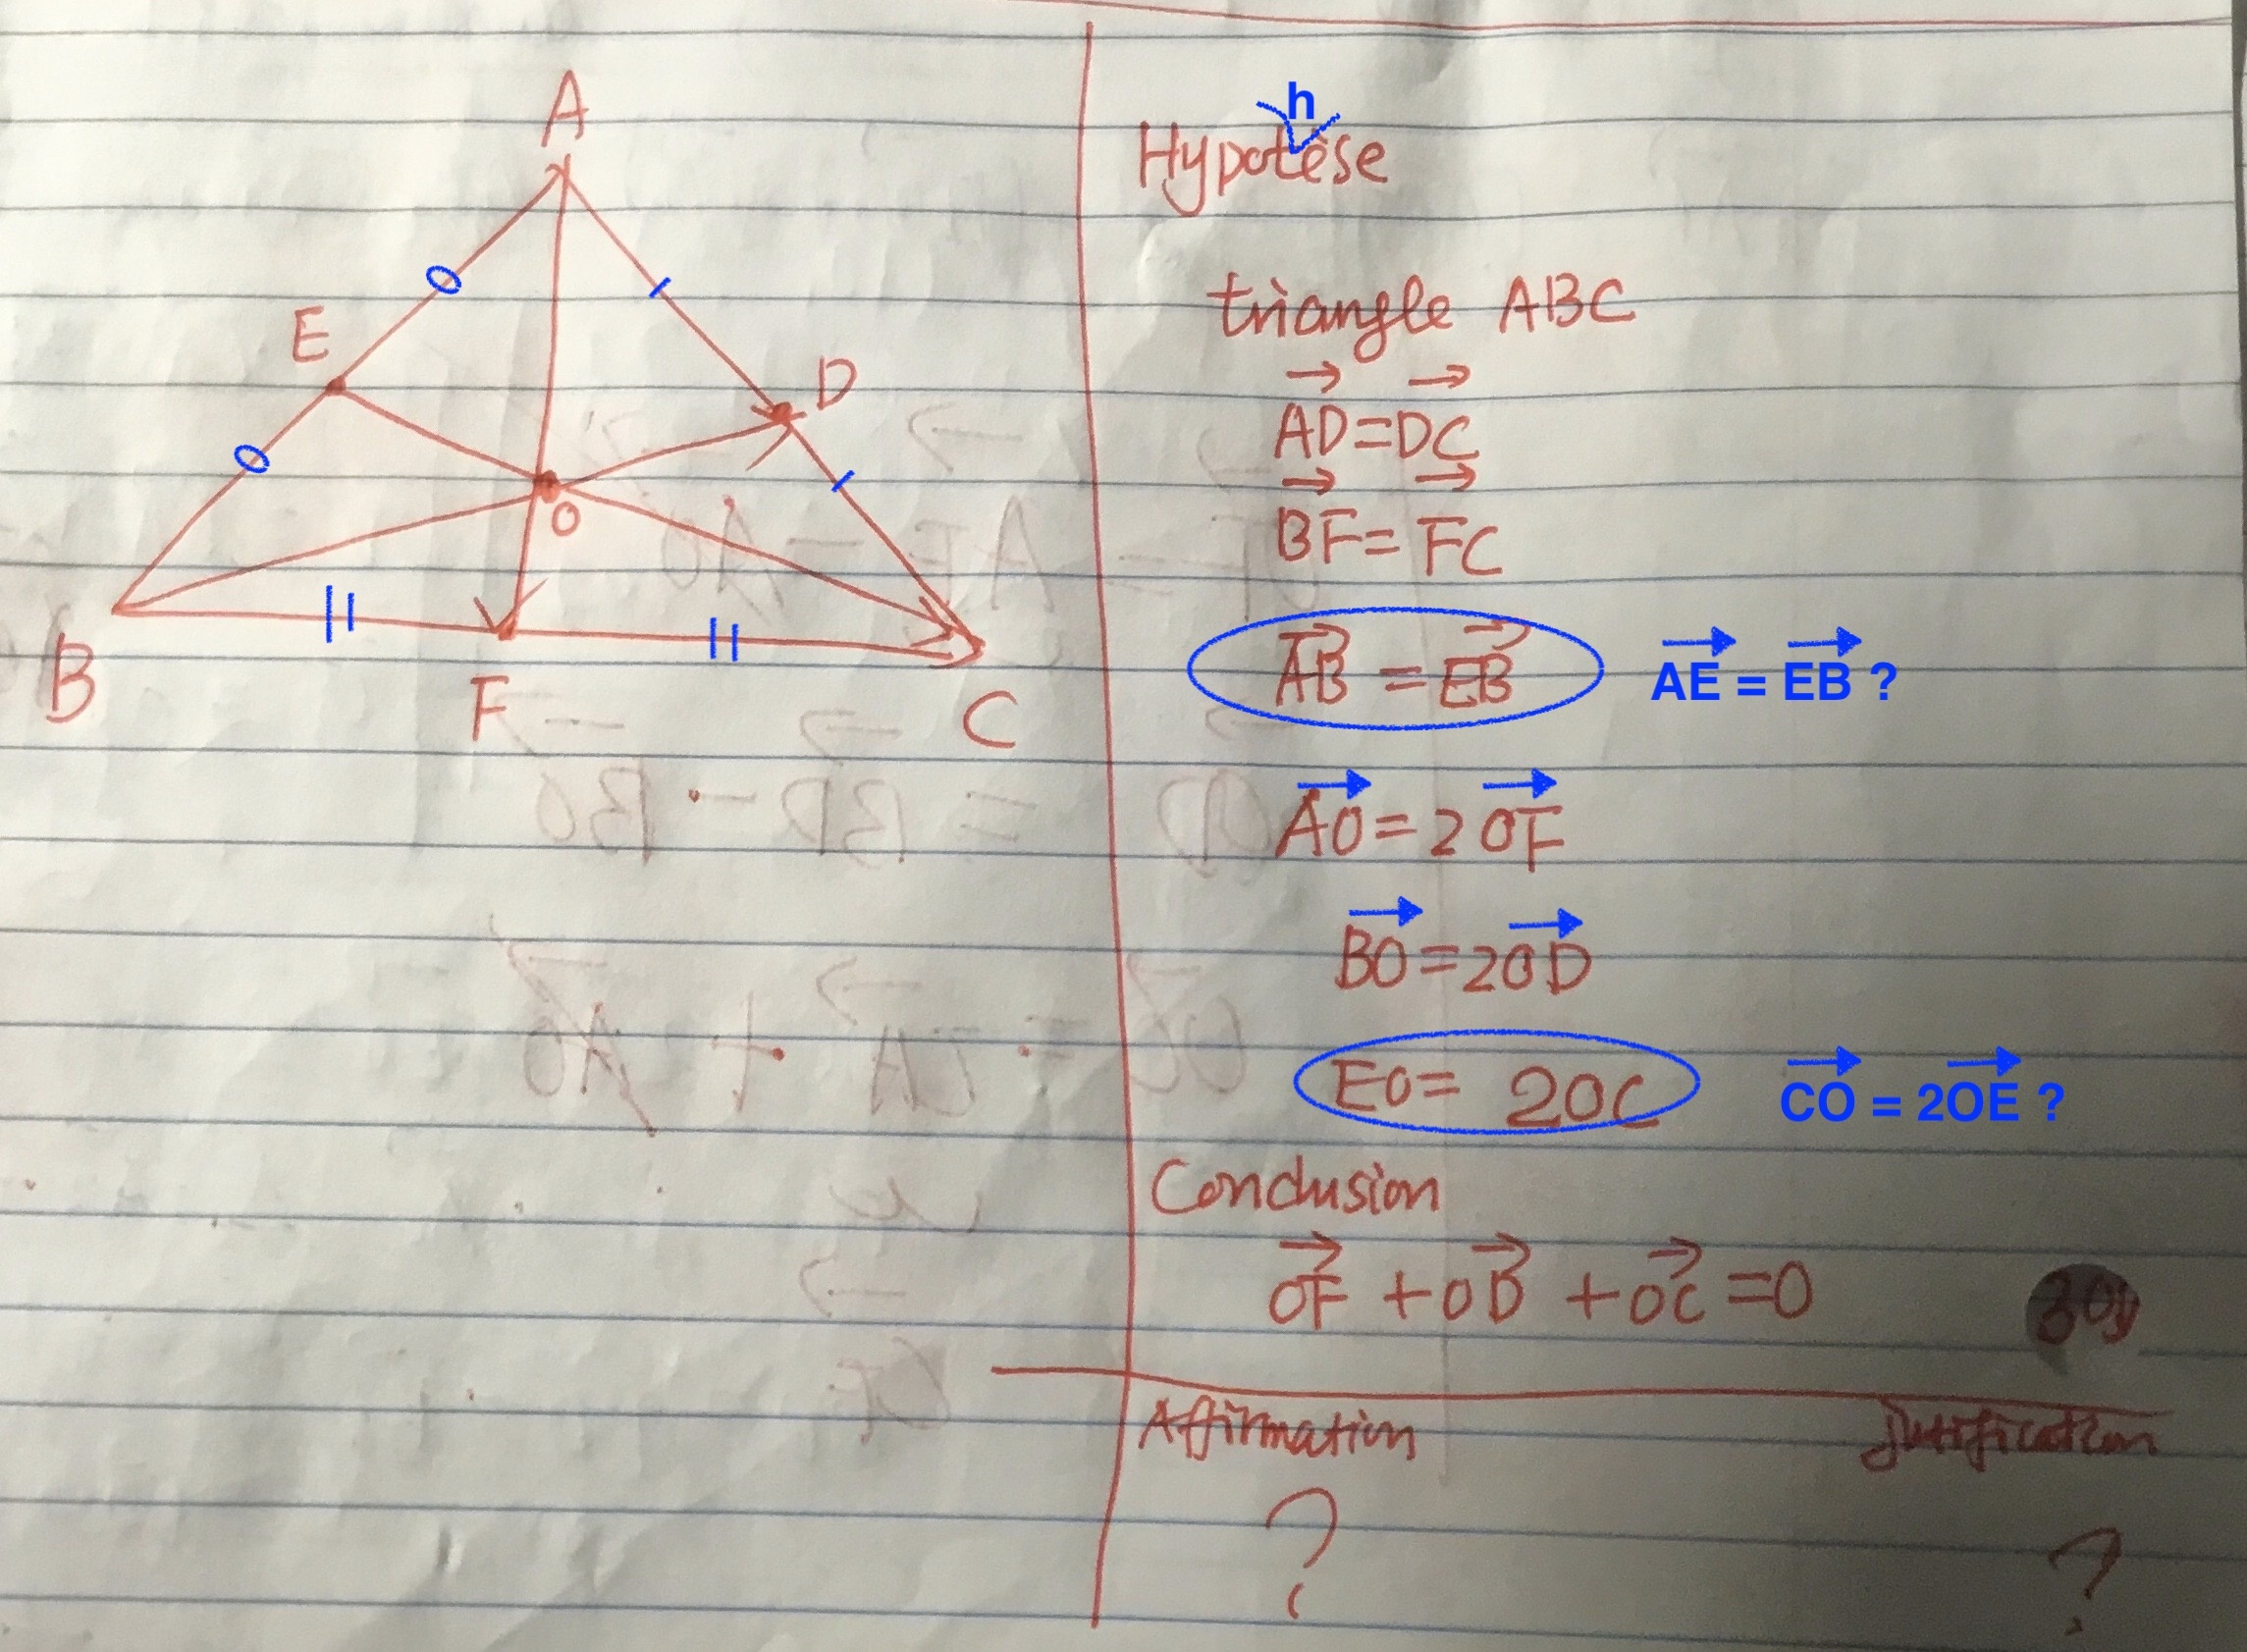 A
E
D
O
B
F
C
h
Hypotèse
triangle ABC
AD=DC
BF=FC
AB=EB
AE = EB ?
AO=2OF
BO=2OD
EO= 2OC
CO = 2OE ?
Conclusion
OF+OD+OC=0
Affirmation Jutification
? ?